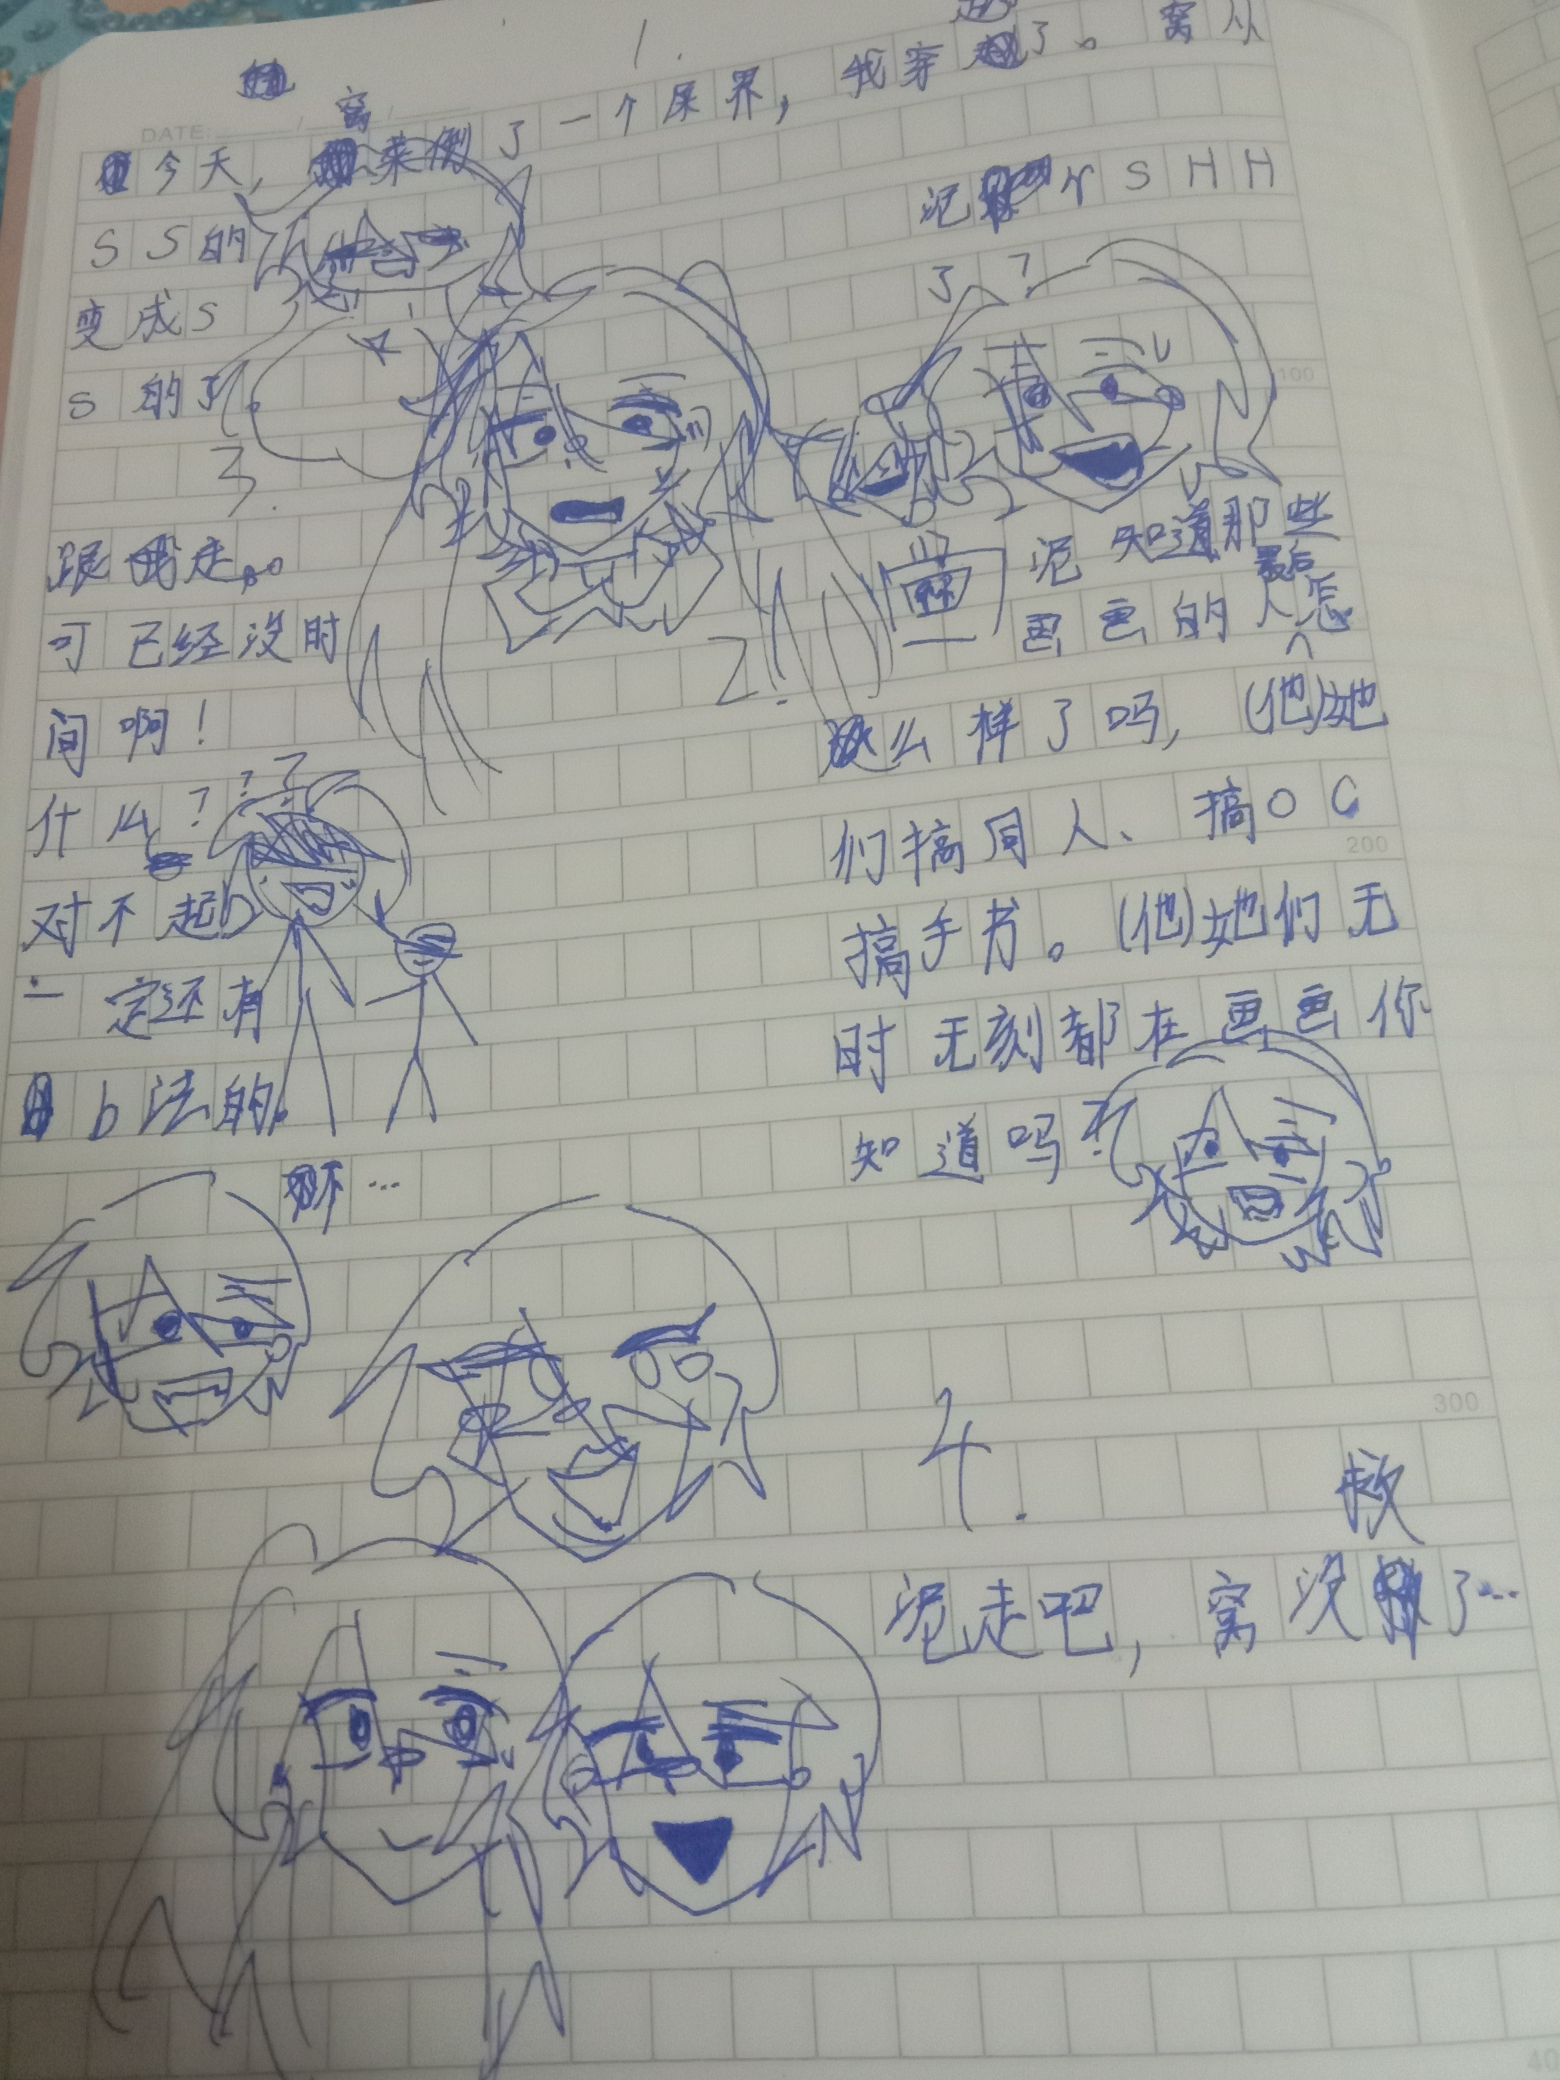 1.
窝
今天,来倒了一个屎界,我穿起了。窝从
SS的
变成s
s的了。
泥 SHH
了?
2.
泥知道那些
画画的人最后怎
么样了吗,(他)她
们搞同人、搞OC
搞手书。(他)她们无
时无刻都在画画你
知道吗?
3.
跟我走。。
可已经没时
间啊!
什么???
对不起b
一定还有
b法的。
不…
4.
救
泥走吧,窝没了…
DATE: / /
100
200
300
40